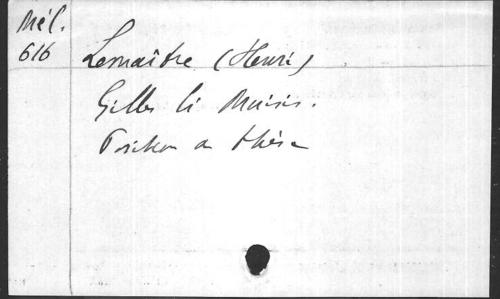 Mél.
616
Lemaître (Henri)
Gilles li Muisis.
Position de thèse